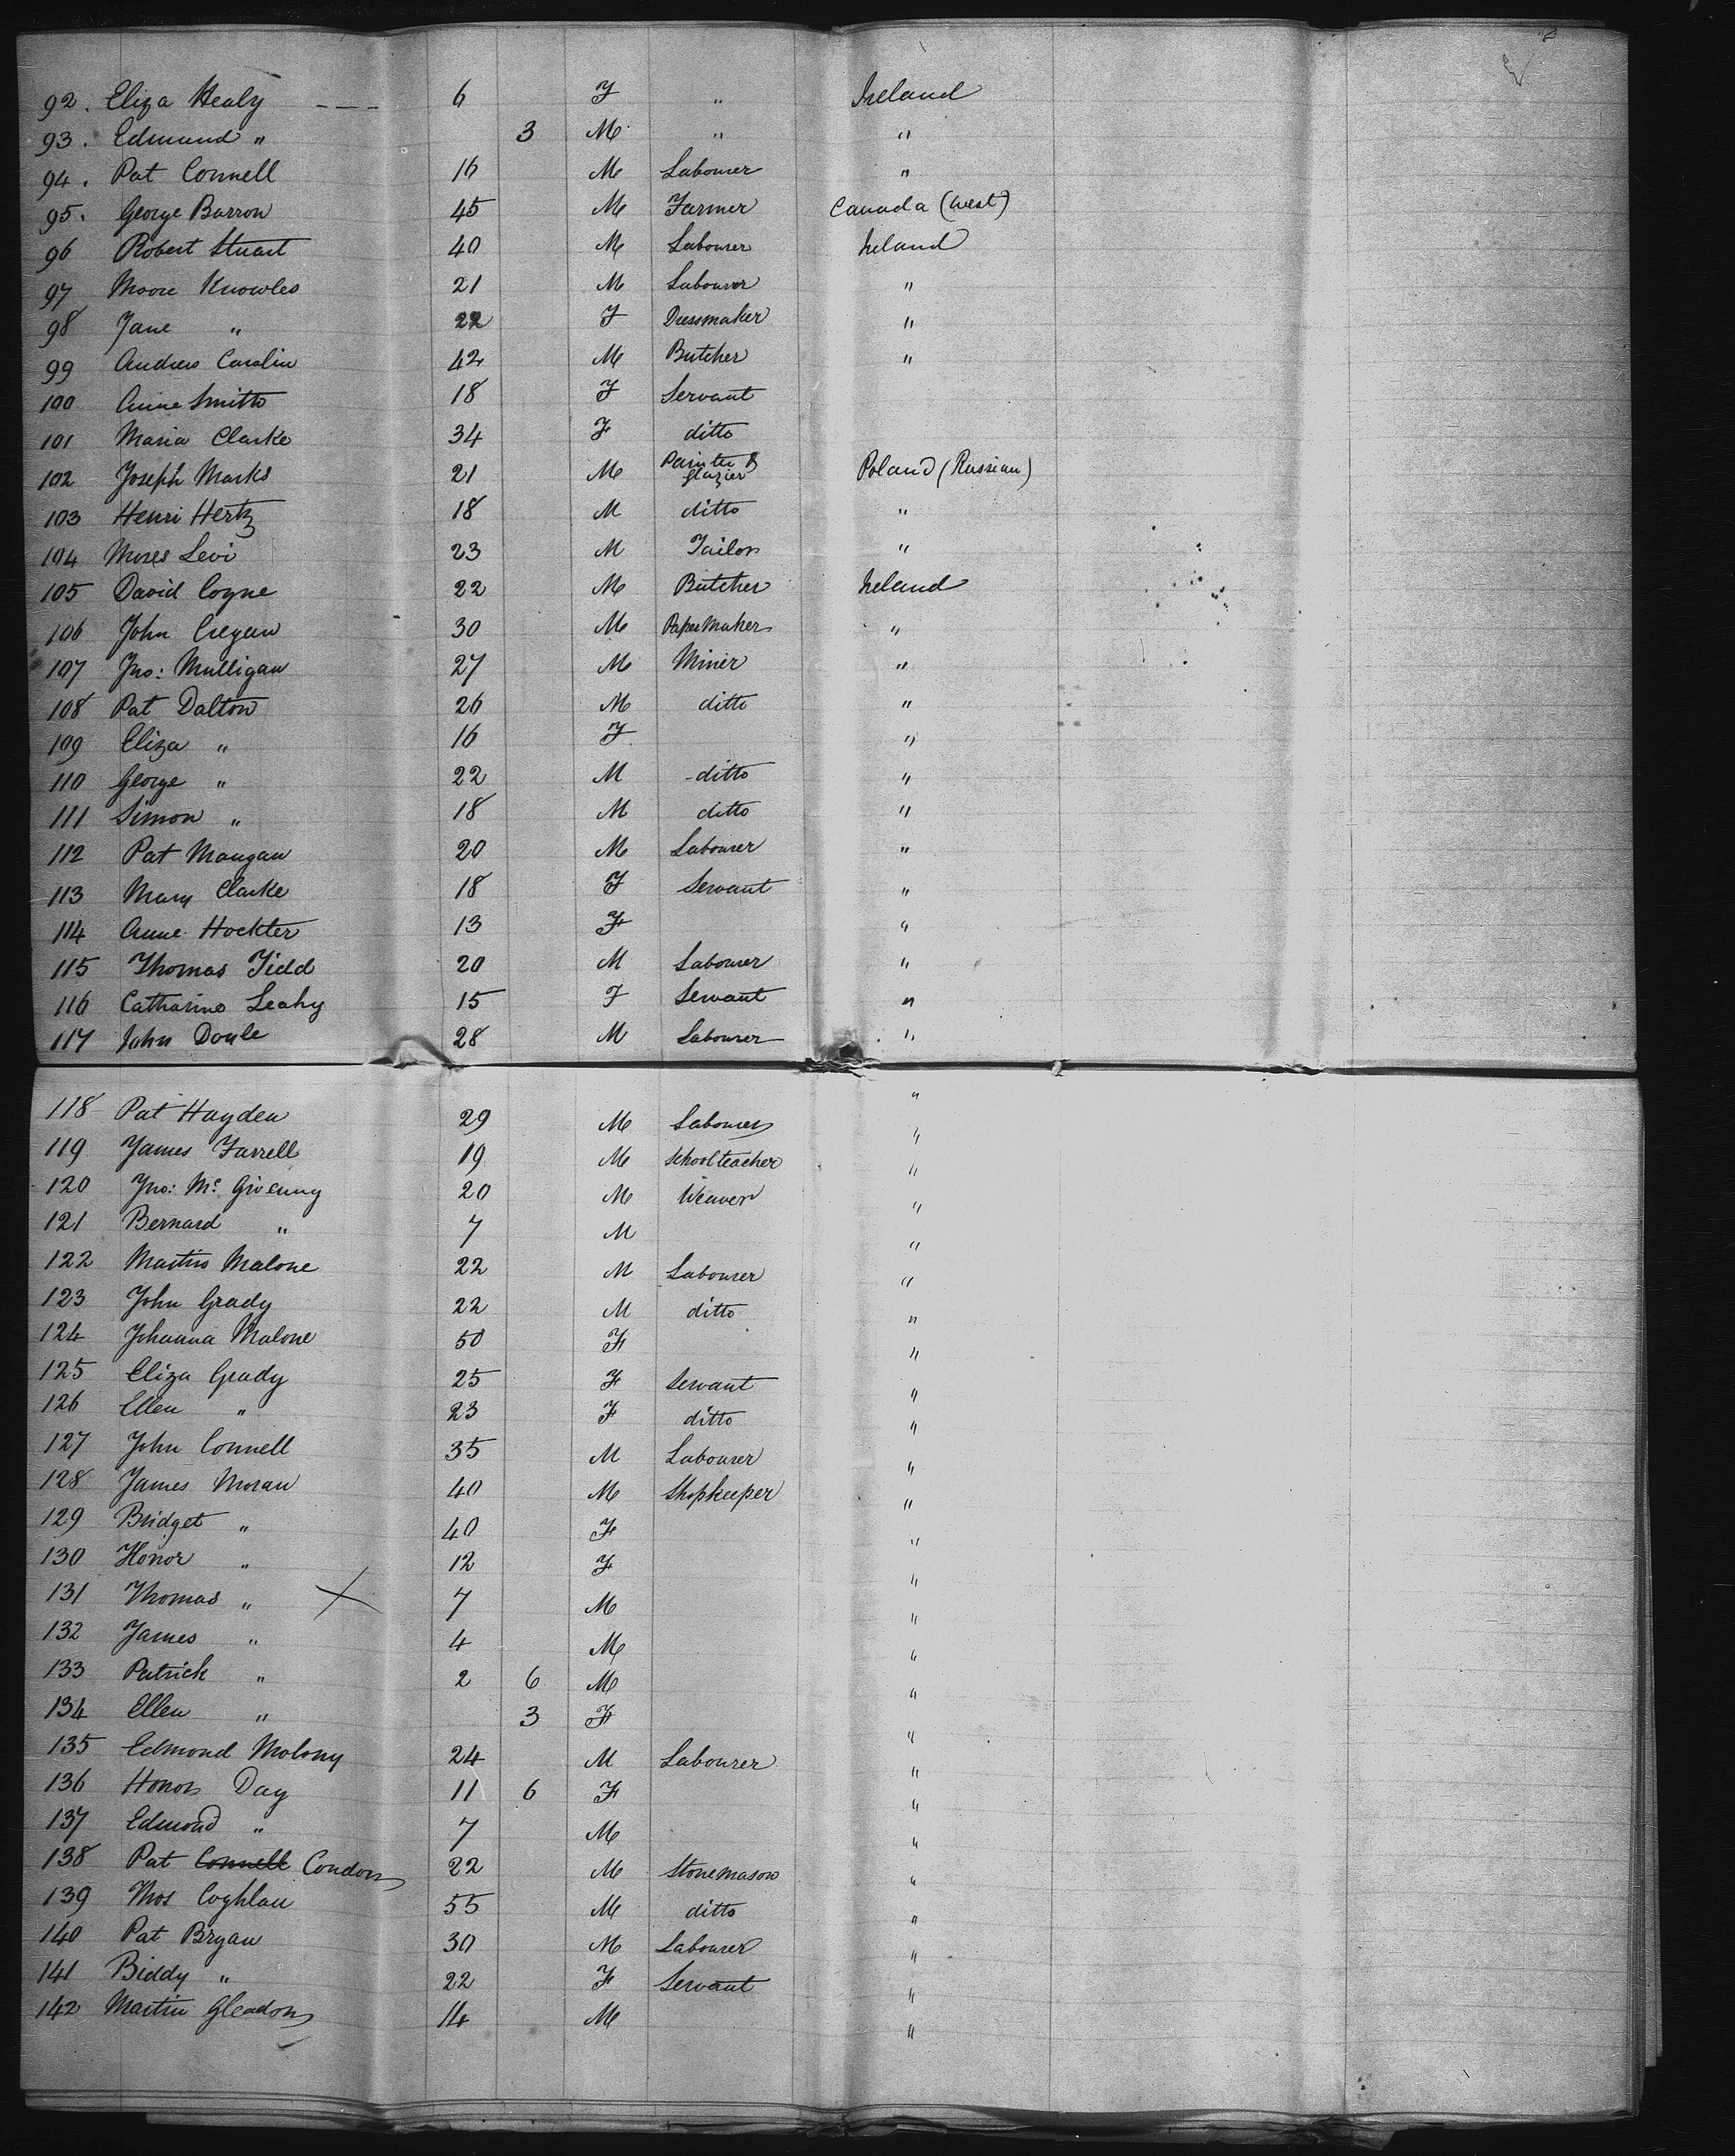 92. Eliza Healy --- 6 F " Ireland
93. Edmund " 3 M " "
94. Pat Connell 16 M Labourer "
95. George Barron 45 M Farmer Canada (West)
96 Robert Stuart 40 M Labourer Ireland
97 Moore Knowles 21 M Labourer "
98 Jane " 22 F Dressmaker "
99 Andrew Carolin 42 M Butcher "
100 Anne Smith 18 F Servant
101 Maria Clarke 34 F ditto
102 Joseph Marks 21 M Painter & Glazier Poland (Russian)
103 Henri Hertz 18 M ditto "
104 Moses Levi 23 M Tailor "
105 David Coyne 22 M Butcher Ireland
106 John Cregan 30 M Paper Maker "
107 Jno: Mulligan 27 M Miner "
108 Pat Dalton 26 M ditto "
109 Eliza " 16 F "
110 George " 22 M ditto "
111 Simon " 18 M ditto "
112 Pat Mangan 20 M Labourer "
113 Mary Clarke 18 F Servant "
114 Anne Hockter 13 F "
115 Thomas Tidd 20 M Labourer "
116 Catharine Leahy 15 F Servant "
117 John Doyle 28 M Labourer "
118 Pat Hayden 29 M Labourer "
119 James Farrell 19 M Schoolteacher "
120 Jno: Mc Givenny 20 M Weaver "
121 Bernard " 7 M "
122 Martin Malone 22 M Labourer "
123 John Grady 22 M ditto "
124 Johanna Malone 50 F "
125 Eliza Grady 25 F Servant "
126 Ellen " 23 F ditto "
127 John Connell 35 M Labourer "
128 James Moran 40 M Shopkeeper "
129 Bridget " 40 F "
130 Honor " 12 F "
131 Thomas " X 7 M "
132 James " 4 M "
133 Patrick " 2 6 M "
134 Ellen " 3 F "
135 Edmond Molony 24 M Labourer "
136 Honor Day 11 6 F "
137 Edmond " 7 M "
138 Pat Connell Condon 22 M Stonemason "
139 Thos Coghlan 55 M ditto "
140 Pat Bryan 30 M Labourer "
141 Biddy " 22 F Servant "
142 Martin Gleadon 14 M "